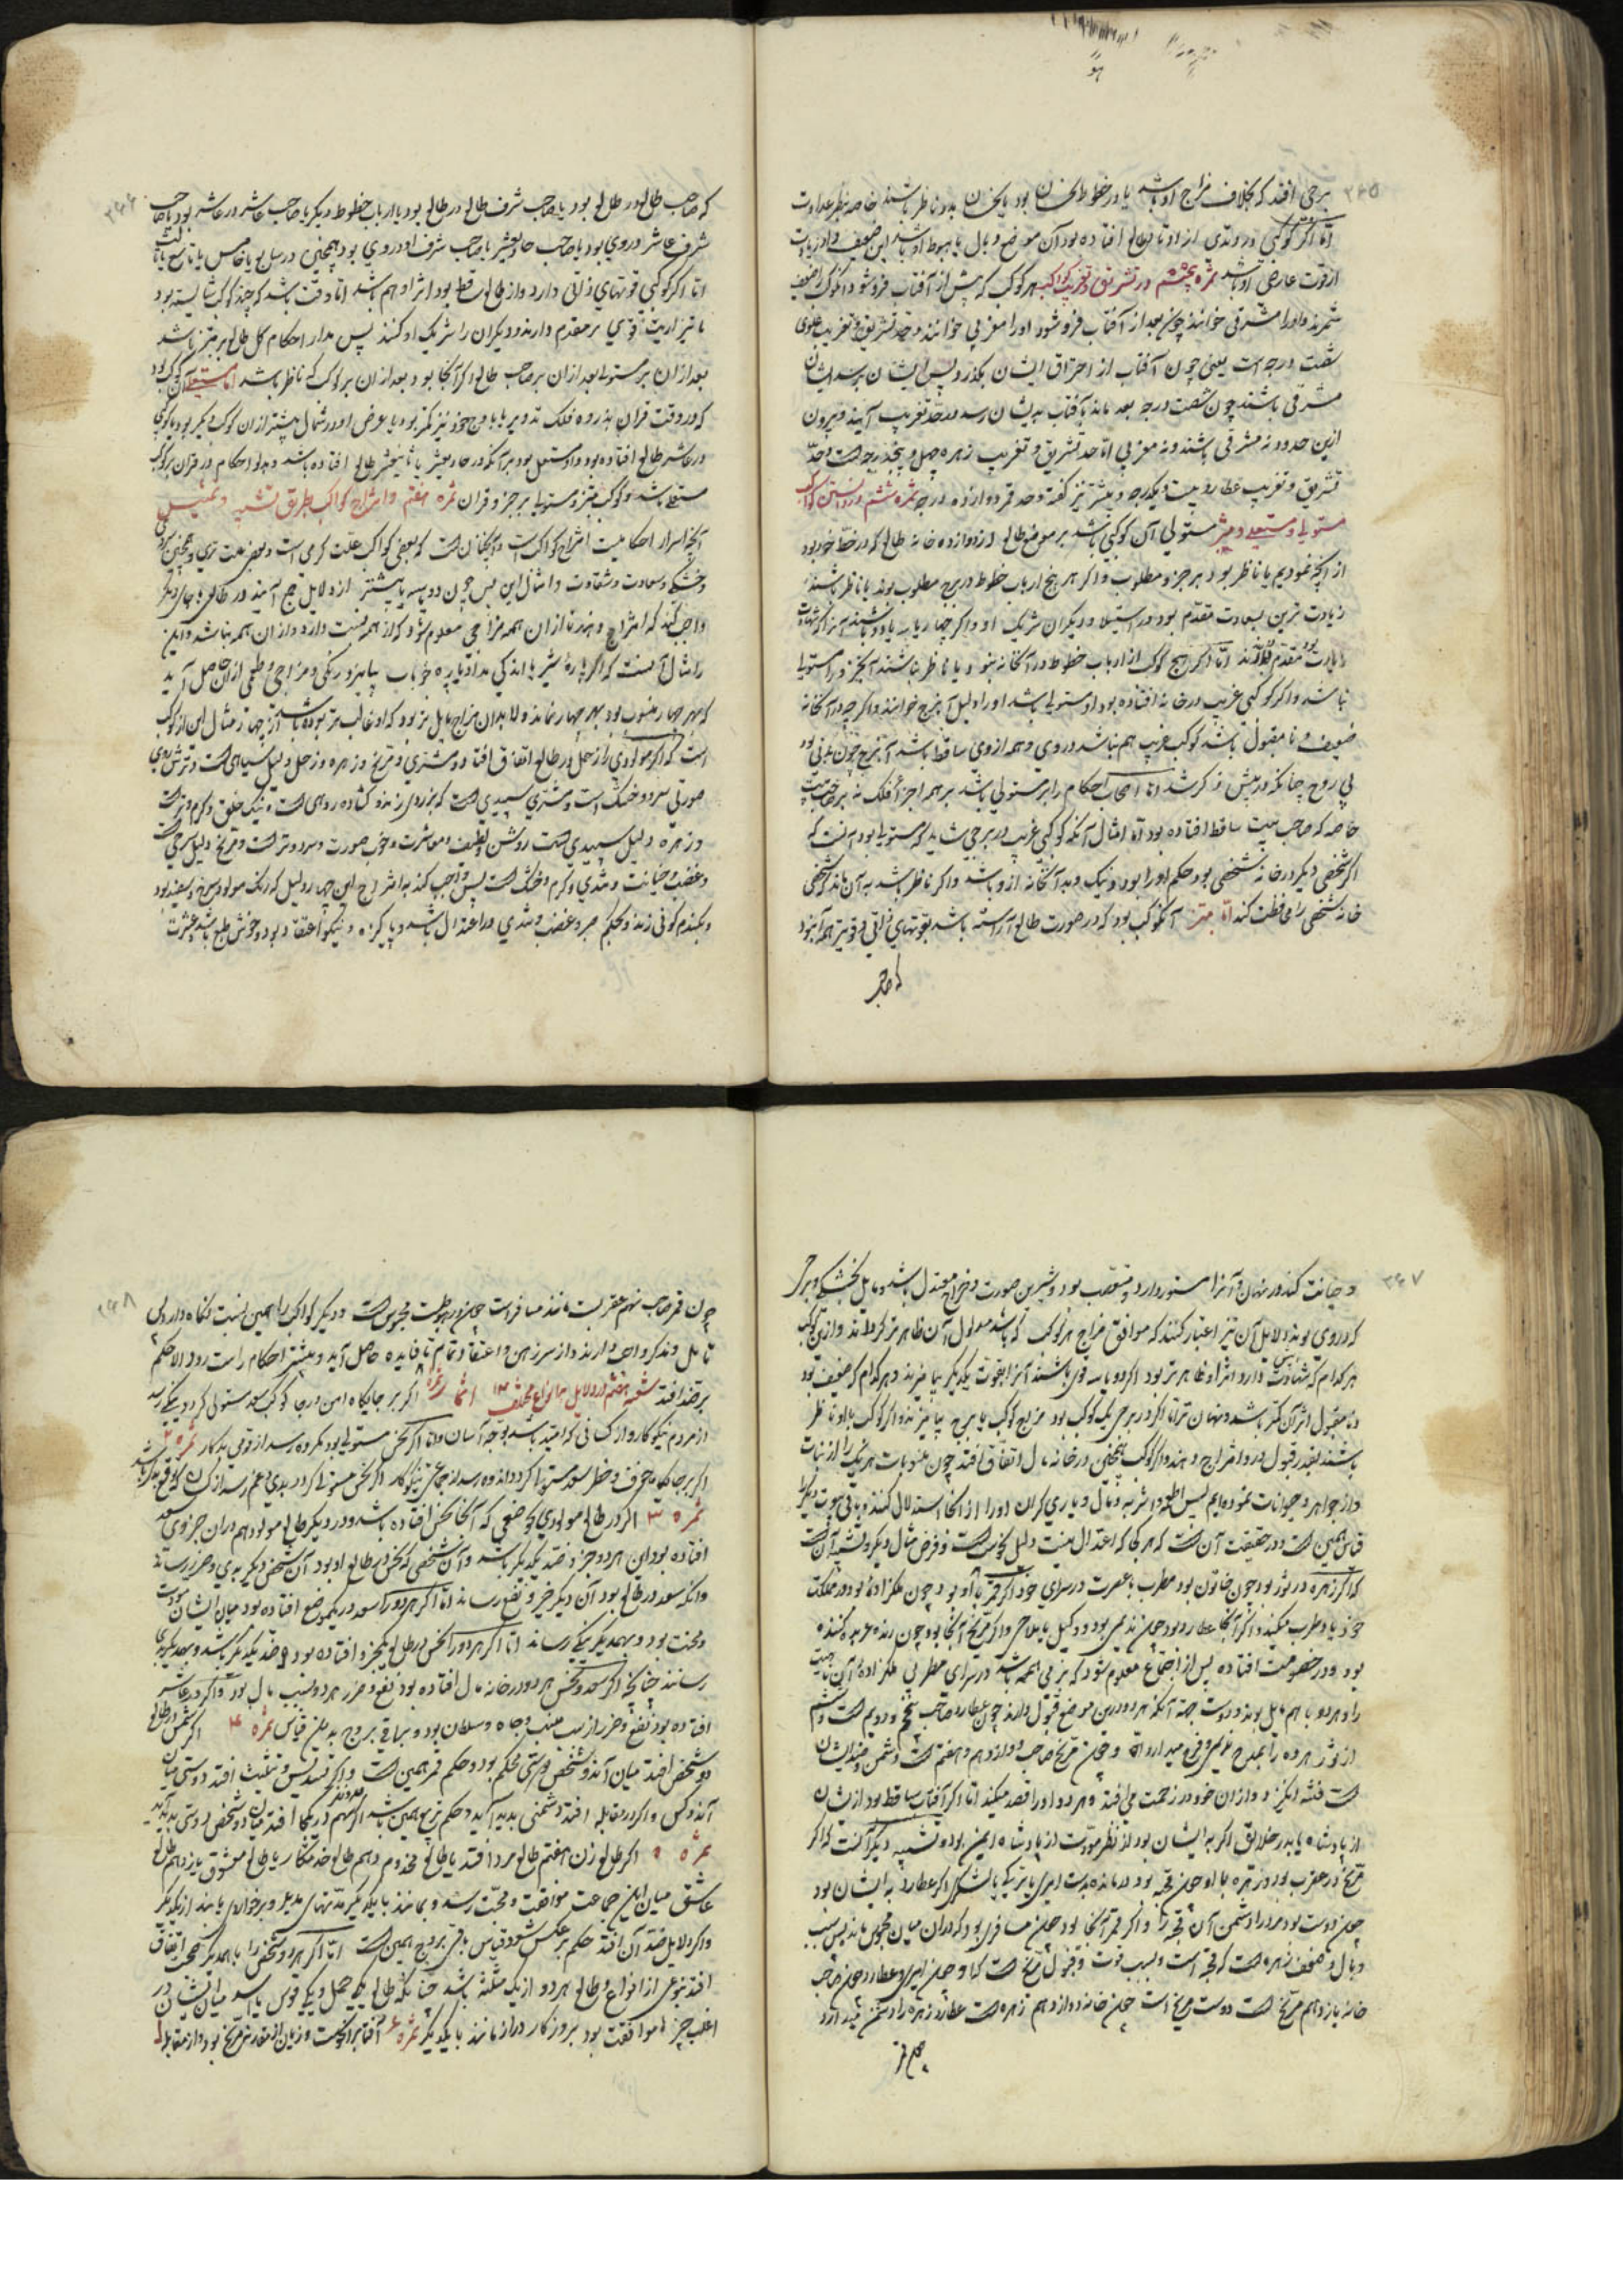 ۲۶۵
برجی افتد که بخلاف مزاج او باشد یا در خطوط نحسان بود یا نحسان بدو ناظر باشند خاصه بنظر عداوت
اما اگر کوکبی در وتدی از اوتاد طالع افتاده بود آن موضع وبال یا هبوط او باشد این ضعیف
از قوت عارضی او باشد ثمره پنجم در تشریق و تغریب کواکب هر کوکب که پیش از آفتاب فرو شود آن کوکب را ضعیف
شمرند و او را مشرقی خوانند و چون بعد از آفتاب فرو شود او را مغربی خوانند و حد تشریق و تغریب علوی
شصت درجه است یعنی چون آفتاب از احتراق ایشان بگذرد و پس ایشان
مشرقی باشند چون شصت درجه بعد ماند بآفتاب بایشان رسد در حد تغریب آیند و بیرون
ازین حدود نه مشرقی باشند و نه مغربی اما حد تشریق و تغریب زهره چهل و پنج درجه است و حد
تشریق و تغریب عطارد بیست و یکدرجه و بیشتر نیز گفته و حد قمر دوازده درجه ثمره ششم در دانستن کواکب
مستولیا و مستعلی و مبتز مستولی آن کوکبی باشد بر موضع طالع از دوازده خانه طالع که در حظ خود بود
از آنچه نمودیم یا ناظر بود بهر جزو مطلوب و اگر هر پنج ارباب خطوط در برج مطلوب بوند یا ناظر باشند
زیادت ترین بسعادت مقدم بود در استیلا و دیگران شریک او و اگر چهار یا سه یا دو باشند آنرا که شهادت
زیادت بود مقدم دارند اما اگر هیچ کوکب از ارباب خطوط در آن خانه نبود یا ناظر نباشند آنجزو را مستولیا
نباشد و اگر کوکبی غریب در خانه افتاده بود او مستولی باشد او را دلیل آن برج خوانند و اگر چه در آن خانه
ضعیف و نامقبول باشد کوکب غریب هم نباشد در وی و همه از وی ساقط باشد آن برج چون بدنی بود
بی روح چنانکه در پیش ذکر شد اما اصحاب احکام را بر مستولی باشد بر همه اجزا فلک نه بر صاحب بیت
خاصه که صاحب بیت ساقط افتاده بود اما امثال آنکه کوکبی غریب در برجی شاید که مستولیا بود آنست که
اگر شخصی دیگر در خانه شخصی بود حکم او را بود و نیک و بد آن خانه از و باشد و اگر ناظر باشد به آن ماند که شخصی
خانه شخصی را محافظت کند اما مبتز آن کوکب بود که در صورت طالع آراسته باشد بقوتهای ذاتی و قوی تر همه آن بود
که صاحب
۲۶۶
که صاحب طالع در طالع بود یا صاحب شرف طالع در طالع بود یا ارباب خطوط دیگر یا صاحب عاشر در عاشر بود یا صاحب
شرف عاشر در وی بود یا صاحب حادیعشر یا صاحب شرف او در وی بود همچنین در سابع یا خامس یا تاسع یا ثالث
اما اگر کوکبی قوتهای ذاتی دارد و از طالع ساقط بود اثر او هم باشد اما وقت باشد که چند کوکب شایسته بود
تا قوی تر مقدم دارند و دیگران را شریک او کنند پس مدار احکام کل طالع بر مبتز باشد
بعد از آن بر مستولی بعد از آن بر صاحب طالع و کواکب آنجا بود و بعد از آن بر کوکب که ناظر باشد اما مستعلی آن کوکب بود
که در وقت قران بذروه فلک تدویر یا باوج خود نزدیکتر بود یا عرض او در شمال بیشتر از آن کوکب دیگر بود یا کوکبی
در عاشر طالع افتاده بود او مستعلی بود بر آنکه در حادیعشر یا ثانیعشر طالع افتاده باشد و مدار احکام در قران بر کوکب
مستعلی باشد و کوکب مبتز و مستولیا بر جزو قران ثمره هفتم در امتزاج کواکب بطریق تشبیه و تمثیل
آنچه اسرار احکامیست امتزاج کواکب است و آنچنان است که بعضی کواکب علت گرمی است و بعضی علت تری و همچنین سردی
و خشکی و سعادت و شقاوت و امثال این پس چون دو یا سه یا بیشتر از دلایل جمع آیند در طالعی یا جای دیگر
واجب کند که امتزاج دهند تا از آن همه مزاجی معلوم شود که از همه نسبت دارد و از آن همه نباشد و این
را مثال آنست که اگر پارهٔ شیر با اندکی مداد یا پاره خوناب بیامیزد رنگی و مزاجی و طعمی از آن حاصل آید
که بهر چهار منسوب بود بهر چهار نماند و لابد آن مزاج مایل تر بود که او غالب تر بوده باشد از آن چهار مثال این از کواکب
است که اگر مولودی را زحل در طالع اتفاق افتاد و مشتری و مریخ و زهره و زحل دلیل سیاهی است و ترش رویی
صورتی سرد و خشک است و مشتری سپیدی است که بزردی زند و گشاده روی است و نیک خلق و گرم و تر است
و زهره دلیل سپیدی است روشن و لطیف و معاشرت و خوب صورت و سرد و تر است و مریخ دلیل سرخی است
و غضب و خیانت و تندی و گرم و خشک است پس واجب کند به امتزاج این چهار دلیل که رنگ مولود سرخ و سفید بود
و بگندم گونی زند و بحکم صبر و غضب و تندی در اعتدال باشد و پاکیزه و نیکو اعتقاد بود و خوش طبع باشد و عشرت
۲۶۷
و خیانت کند در نهان و آنرا مستور دارد و متعصب بود و شیرین صورت و مزاج معتدل باشد و مایل بخشکی و بر هر
که در وی بوند دلایل آن نیز اعتبار کنند که موافق مزاج هر کوکب که باشد مدلول آن ظاهر تر گردانند و ازین کوکب
هر کدام که شهادت بیش دارد اثر او ظاهر تر بود اگر دو یا سه قوی باشند آنرا بقوت یکدیگر بیامیزند و هر کدام که ضعیف بود
و نامقبول اثر آن کمتر باشد و نهان تر اما اگر در برجی یک کوکب بود مزاج کوکب با برج بیامیزند و اگر کوکب با او ناظر
باشند بقدر قبول در و امتزاج دهند و اگر کوکب همچنین در خانه مال اتفاق افتد چون منسوبات هر یک را از نبات
و از جواهر و حیوانات نموده ایم پس اطعمه و اشربه و مال و یاری گران او را از آنجا استدلال کنند و باقی بیوت دیگر
قیاس همین است و در حقیقت آن است که هر کجا که اعتدال نیست دلیل نحوست است و فرض مثال دیگر و تشبیه آن است
که اگر زهره در ثور بود چون خاتون بود مطرب با عشرت در سرای خود اگر قمر با او بود چون ملکزاده بود در مملکت
خود با و طرب میکند و اگر آنجا عطارد بود چون ندیمی بود و وکیل یا ملاحی و اگر مریخ آنجا بود چون رند عربده کننده
بود و در خصومت افتاده پس از اجتماع معلوم شود که بزمی آنجمله باشد در سرای مطربی ملکزاده آن بناحیت
را و هر دو با هم مایل بوند و دوست جهة آنکه هر دو درین موضع قبول دارند چون عطارد صاحب پنجم و دویم است و سیم
از ثور هر دو را مدح و فرح میدارد و چون مریخ صاحب دوازدهم و هفتم است دشمن و ضد ایشان
است فتنه انگیزد و از آن خود در زحمت می افتد و هر دو او را قصد میکنند اما اگر آفتاب ساقط بود از ایشان
از پادشاه یا پدر خلایق اگر به ایشان بود از نظر مودت از پادشاه ایمن بود و تشبیه دیگر آنست که اگر
مریخ در عقرب بود و زهره با او چون قحبه بود درمانده بدست امیری با ترک یا لشکری اگر عطارد به ایشان بود
چون دوست بود مرد را و دشمن آن قحبه را و اگر قمر آنجا بود چون مسافری بود که در آن میان محبوس ماند پس سبب
وبال و ضعف زهره است که قحبه است و بسبب قوت و قبول مریخ است که او چون امیری و عطارد چون صاحب
خانه یازدهم مریخ است دوست مریخ است چون خانه دوازدهم زهره است عطارد زهره را دشمن میدارد
چون قمر
۲۶۸
چون قمر صاحب نهم عقربست مانند مسافر است چون در هبوط است محبوس است و دیگر کواکب را همین نسبت نگاه دارد لی
تامل و تذکر واجب دارند و از سر ذهن و اعتقاد تمام تا فایده حاصل آید و بیشتر احکام راست رود الا حکم
بر قصد افتد شعبه هفتم در دلایل بانواع مختلف ۳۱ اثمار ثمره ۱ اگر بر جایگاه امن و رجا کوکب سعد مستولی گردد نیکی رسد
از مردم نیکوکار و از کسانی که امید باشد بوجه آسان و اما اگر نحس مستولی بود مکروه رسد از قومی بدکار ثمره ۲
اگر بر جایگاه خوف و خطر سعد مستولی گردد اندوه رسد از جماعتی نیکوکار اگر نحس مستولی گردد بدی و غم رسد از کسان که توقع باشد
ثمره ۳ اگر در طالع مولودی موضعی که آنجا نحس افتاده باشد و در دیگر طالع مولود هم در آن جزوی سعد
افتاده بود این هر دو جزو ضد یکدیگر باشد و آن شخص که نحس در طالع او بود آن شخص دیگر بدی و ضرر رساند
و آنکه سعد در طالع بود آن دیگر خیر و نفع رساند اما اگر هر دو را سعد در یک موضع افتاده بود میان ایشان مودت
و محبت بود و بهمدیگر نیکی رساند اما اگر هر دو را نحس در طالع یک جزو افتاده بود ضد یکدیگر باشد و بهمدیگر بدی
رسانند چنانچه اگر سعد و نحس هر دو در خانه مال افتاده بود نفع و ضرر هر دو بسبب مال بود و اگر در عاشر
افتاده بود نفع و ضرر از سبب منصب و جاه و سلطان بود و بر باقی بروج بدین قیاس ثمره ۴ اگر شمس در طالع
دو شخص افتد میان آندو شخص دوستی محکم بود و حکم قمر همین است و اگر تسدیس و تثلیث افتد دوستی میان
آندو کس و اگر در مقابله افتد دشمنی پدید آید و حکم تربیع همین باشد اگر سهم در یکجا افتد میان دو شخص دوستی پدید آید
ثمره ۵ اگر طالع زن هفتم طالع مرد افتد یا طالع مخدوم دهم طالع خدمتکار یا طالع معشوق یازدهم طالع
عاشق میان این جماعت موافقت و محبت رسد و بمانند با یکدیگر مدتهای مدید و برخوردار یابند از یکدیگر
و اگر دلایل ضد آن افتد حکم بر عکس شود و قیاس باقی بروج همین است اما اگر هر دو شخص را باهم دیگر صحبتی اتفاق
افتد بنوعی از انواع و طالع هر دو از یک مثلثه باشد چنانکه طالع یکی حمل و یکی قوس یا اسد میان ایشان در
اغلب چیزها موافقت بود بروزگار دراز مانند با یکدیگر ثمره ۶